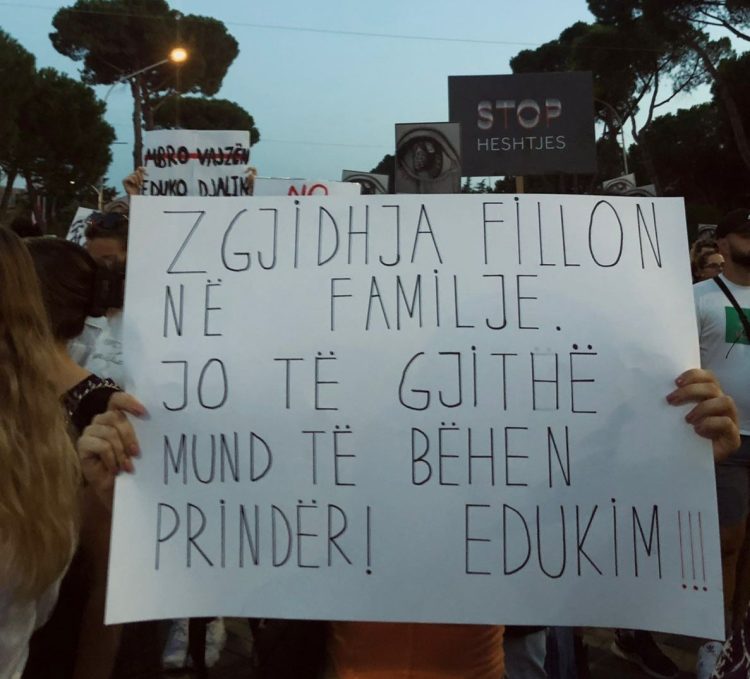 STOP
HESHTJES
MBRO VAJZËN
EDUKO DJALIN
NO
ZGJIDHJA FILLON
NË FAMILJE.
JO TË GJITHË
MUND TË BËHEN
PRINDËR! EDUKIM!!!